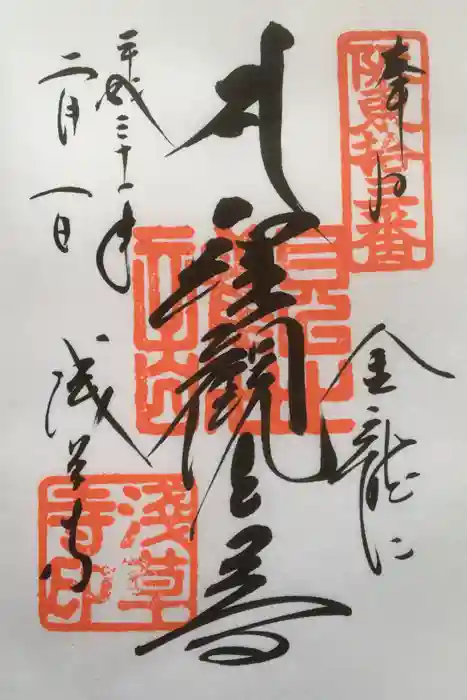 奉拝
坂東拾三番
金龍山
聖観世音
平成三十一年
二月一日
浅草寺
浅草寺印